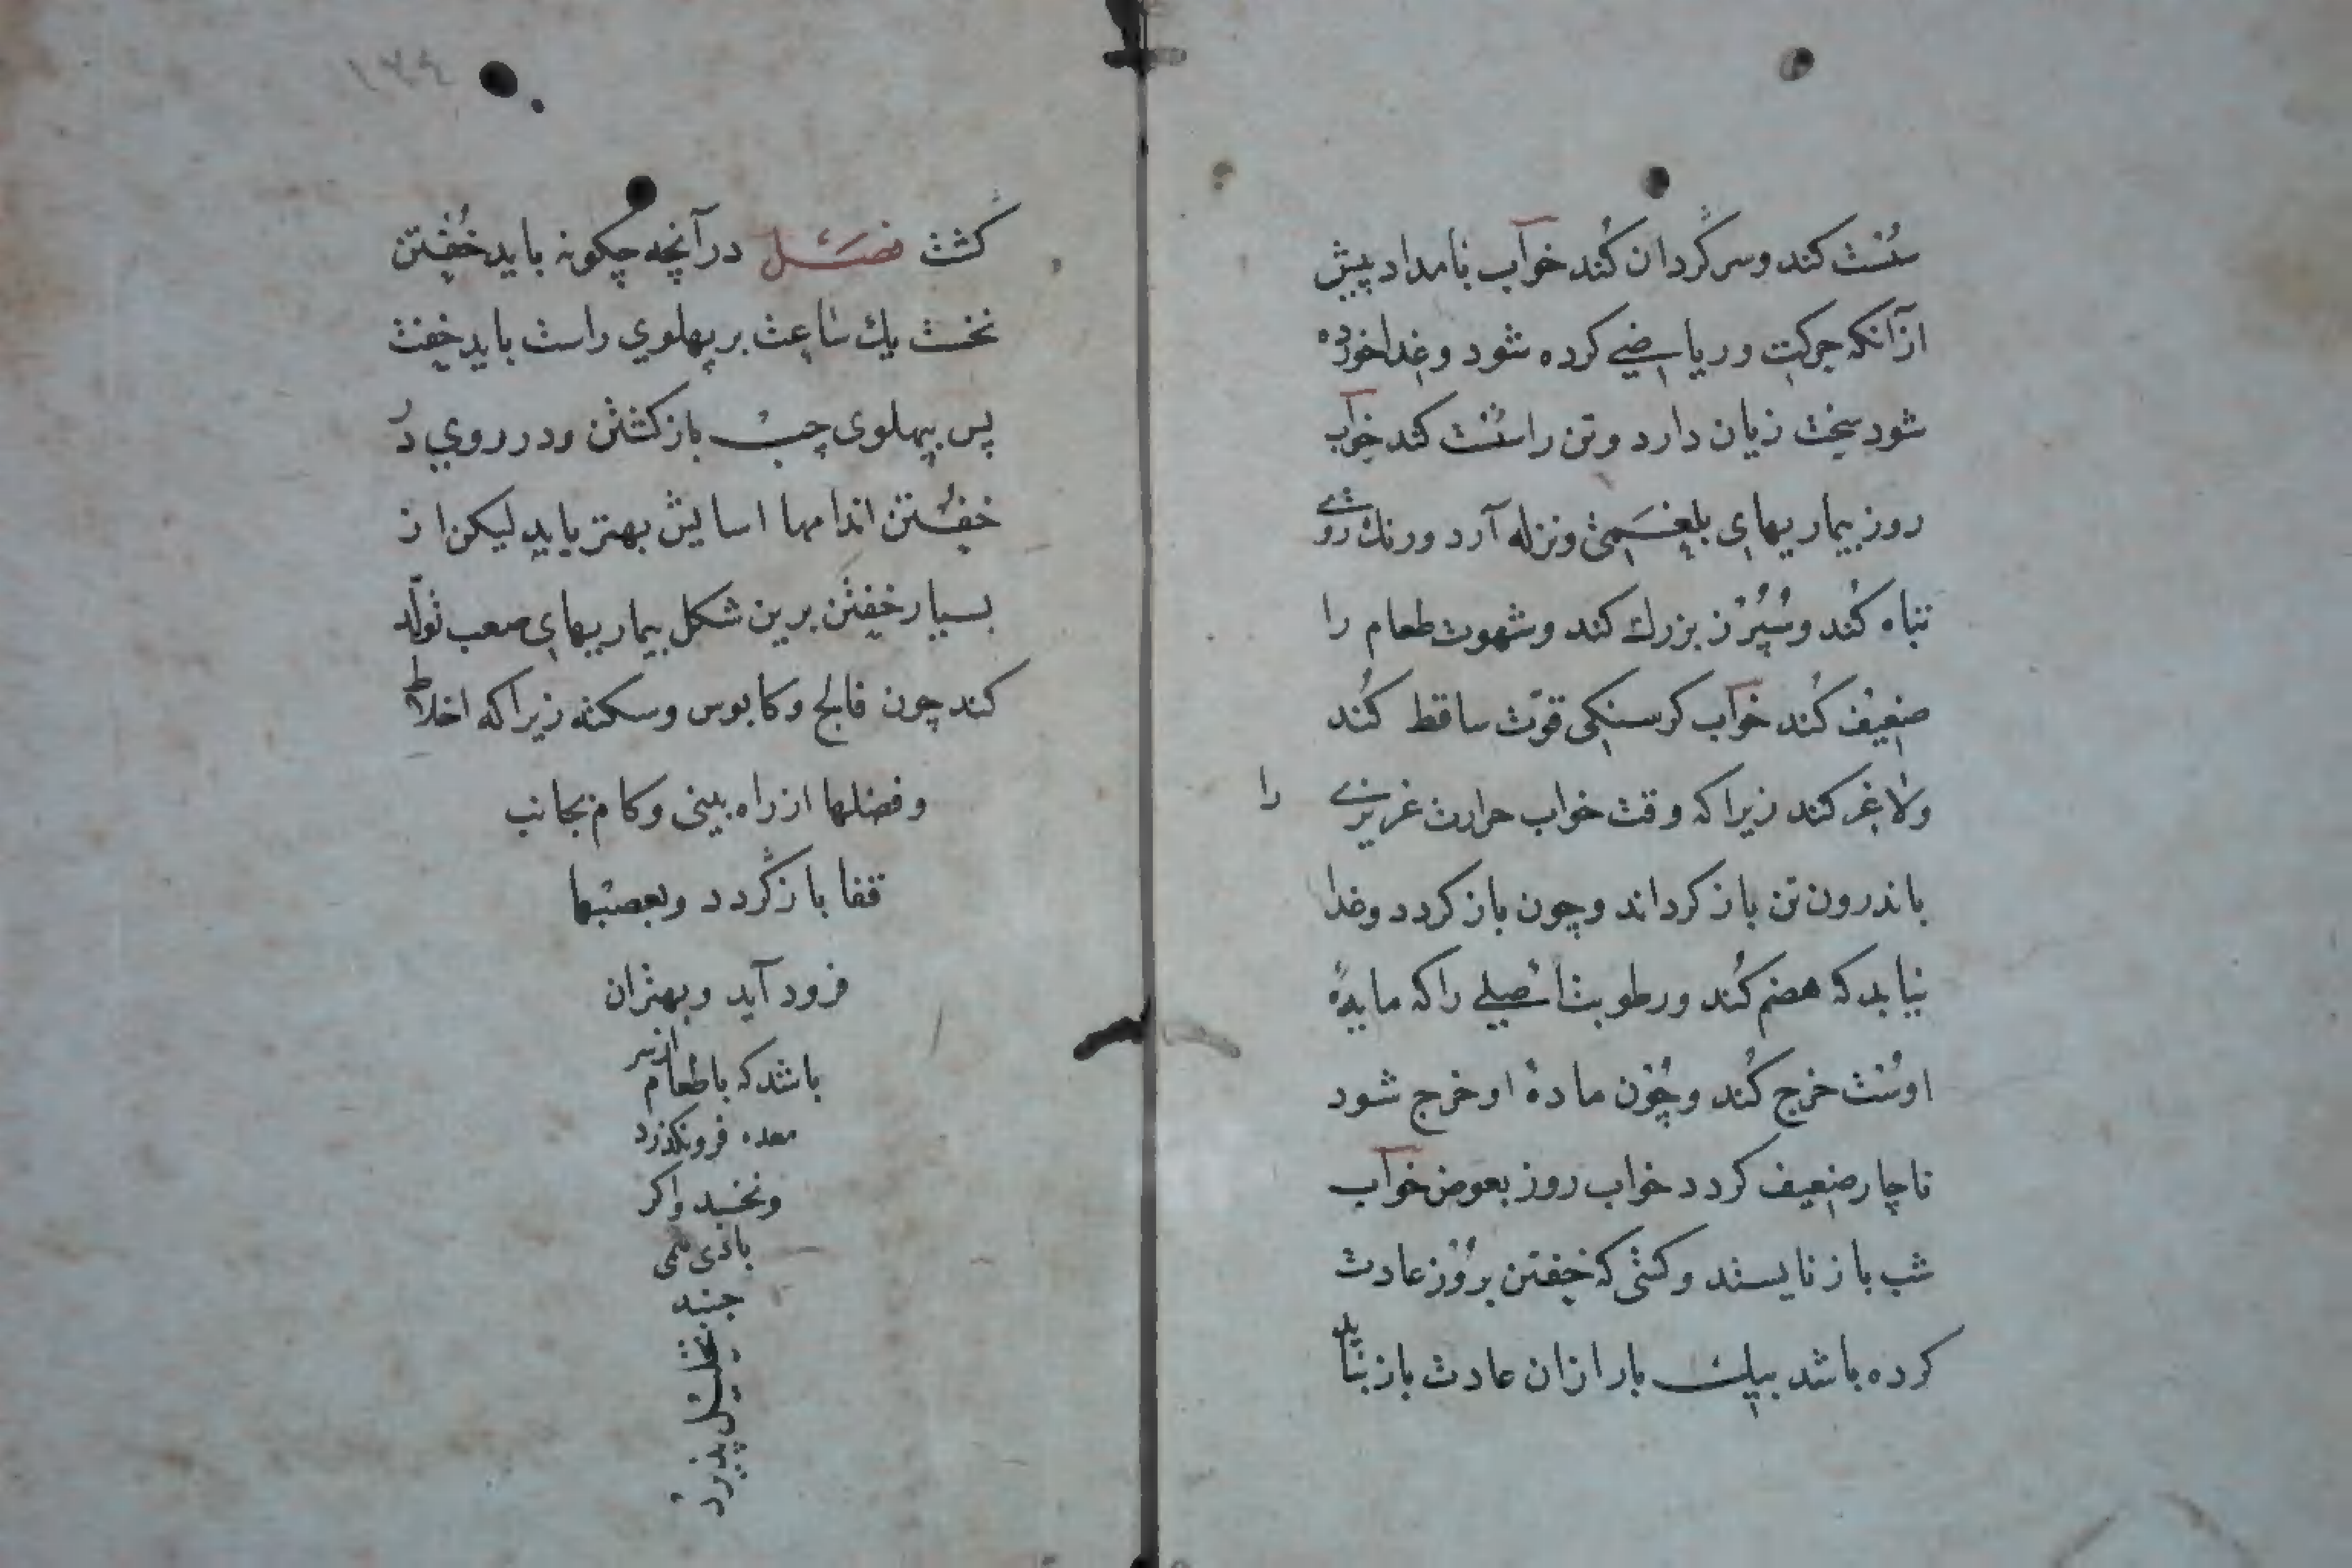 سُست کند و سر گردان کُند خوآب بامداد پیش
ازآنکه حرکت و ریاضیے کرده شود و غذا خورده
شود سخت زیان دارد و تن را سُست کند خوآب
روز بیماریهاي بلغَمی و نزله آرد و رنك روے
تباه کُند و سُپُرز بزرك کند و شهوت طعام را
ضعیف کُند خوآب کرسنکی قوّت ساقط کُند
و لاغر کند زیرا که وقت خواب حرارت غریزے را
باندرون تن باز کرداند و چون باز کردد و غذا
نیابد که هضم کُند و رطوبت اصلے را که مایهٔ
اوست خرج کُند و چُون مادهٔ او خرج شود
ناچار ضعیف کردد خواب روز بعوض خوآب
شب باز نایستد و کسی که خفتن برُوز عادت
کرده باشد بیك بار از ان عادت باز نباید
۱۲۶
کشت فصَل درآنچه چکونه باید خُفتن
نخست یك ساعت بر پهلوي راست باید خفت
پس بپهلوی چپ باز کشتن و در روي دَر
خفُتن اندامها اسایش بهتر یابد لیکن از
بسیار خفتن برین شکل بیماریهاي صعب تولّد
کند چون فالج و کابوس و سکته زیرا که اخلاط
و فضلها از راه بینی و کام بجانب
قفا بازگردد و بعصبها
فرود آید و بهتر ان
باشد که با طعام از سر
معده فرونکذرد
و نخسبد واکر
بادی همی
جنبد
تحلیل پذیرد